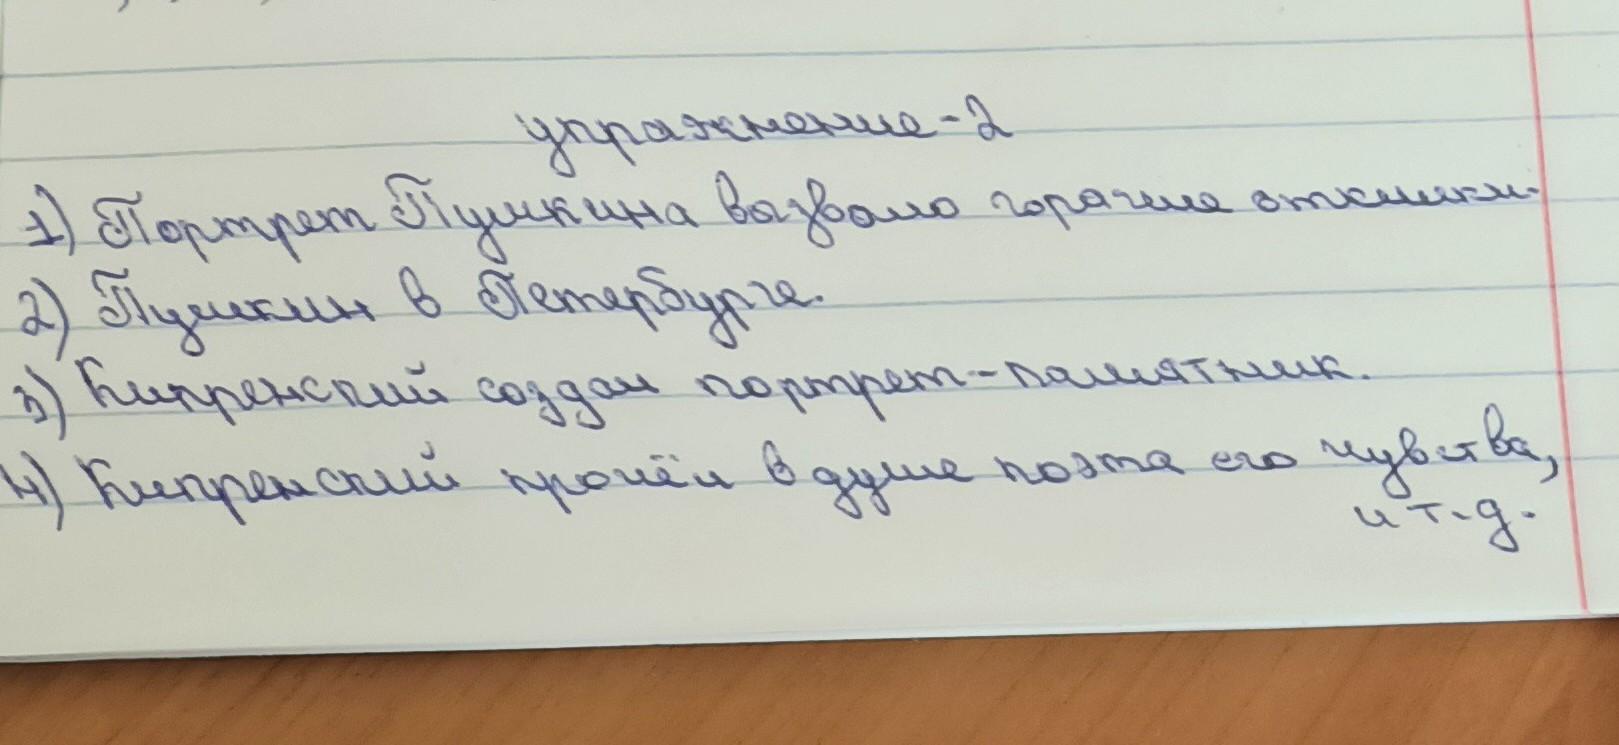 упражнение-2
1) Портрет Пушкина вызвало горячие отклики.
2) Пушкин в Петербурге.
3) Кипренский создал портрет-памятник.
4) Кипренский прочёл в душе поэта его чувства,
и т.д.